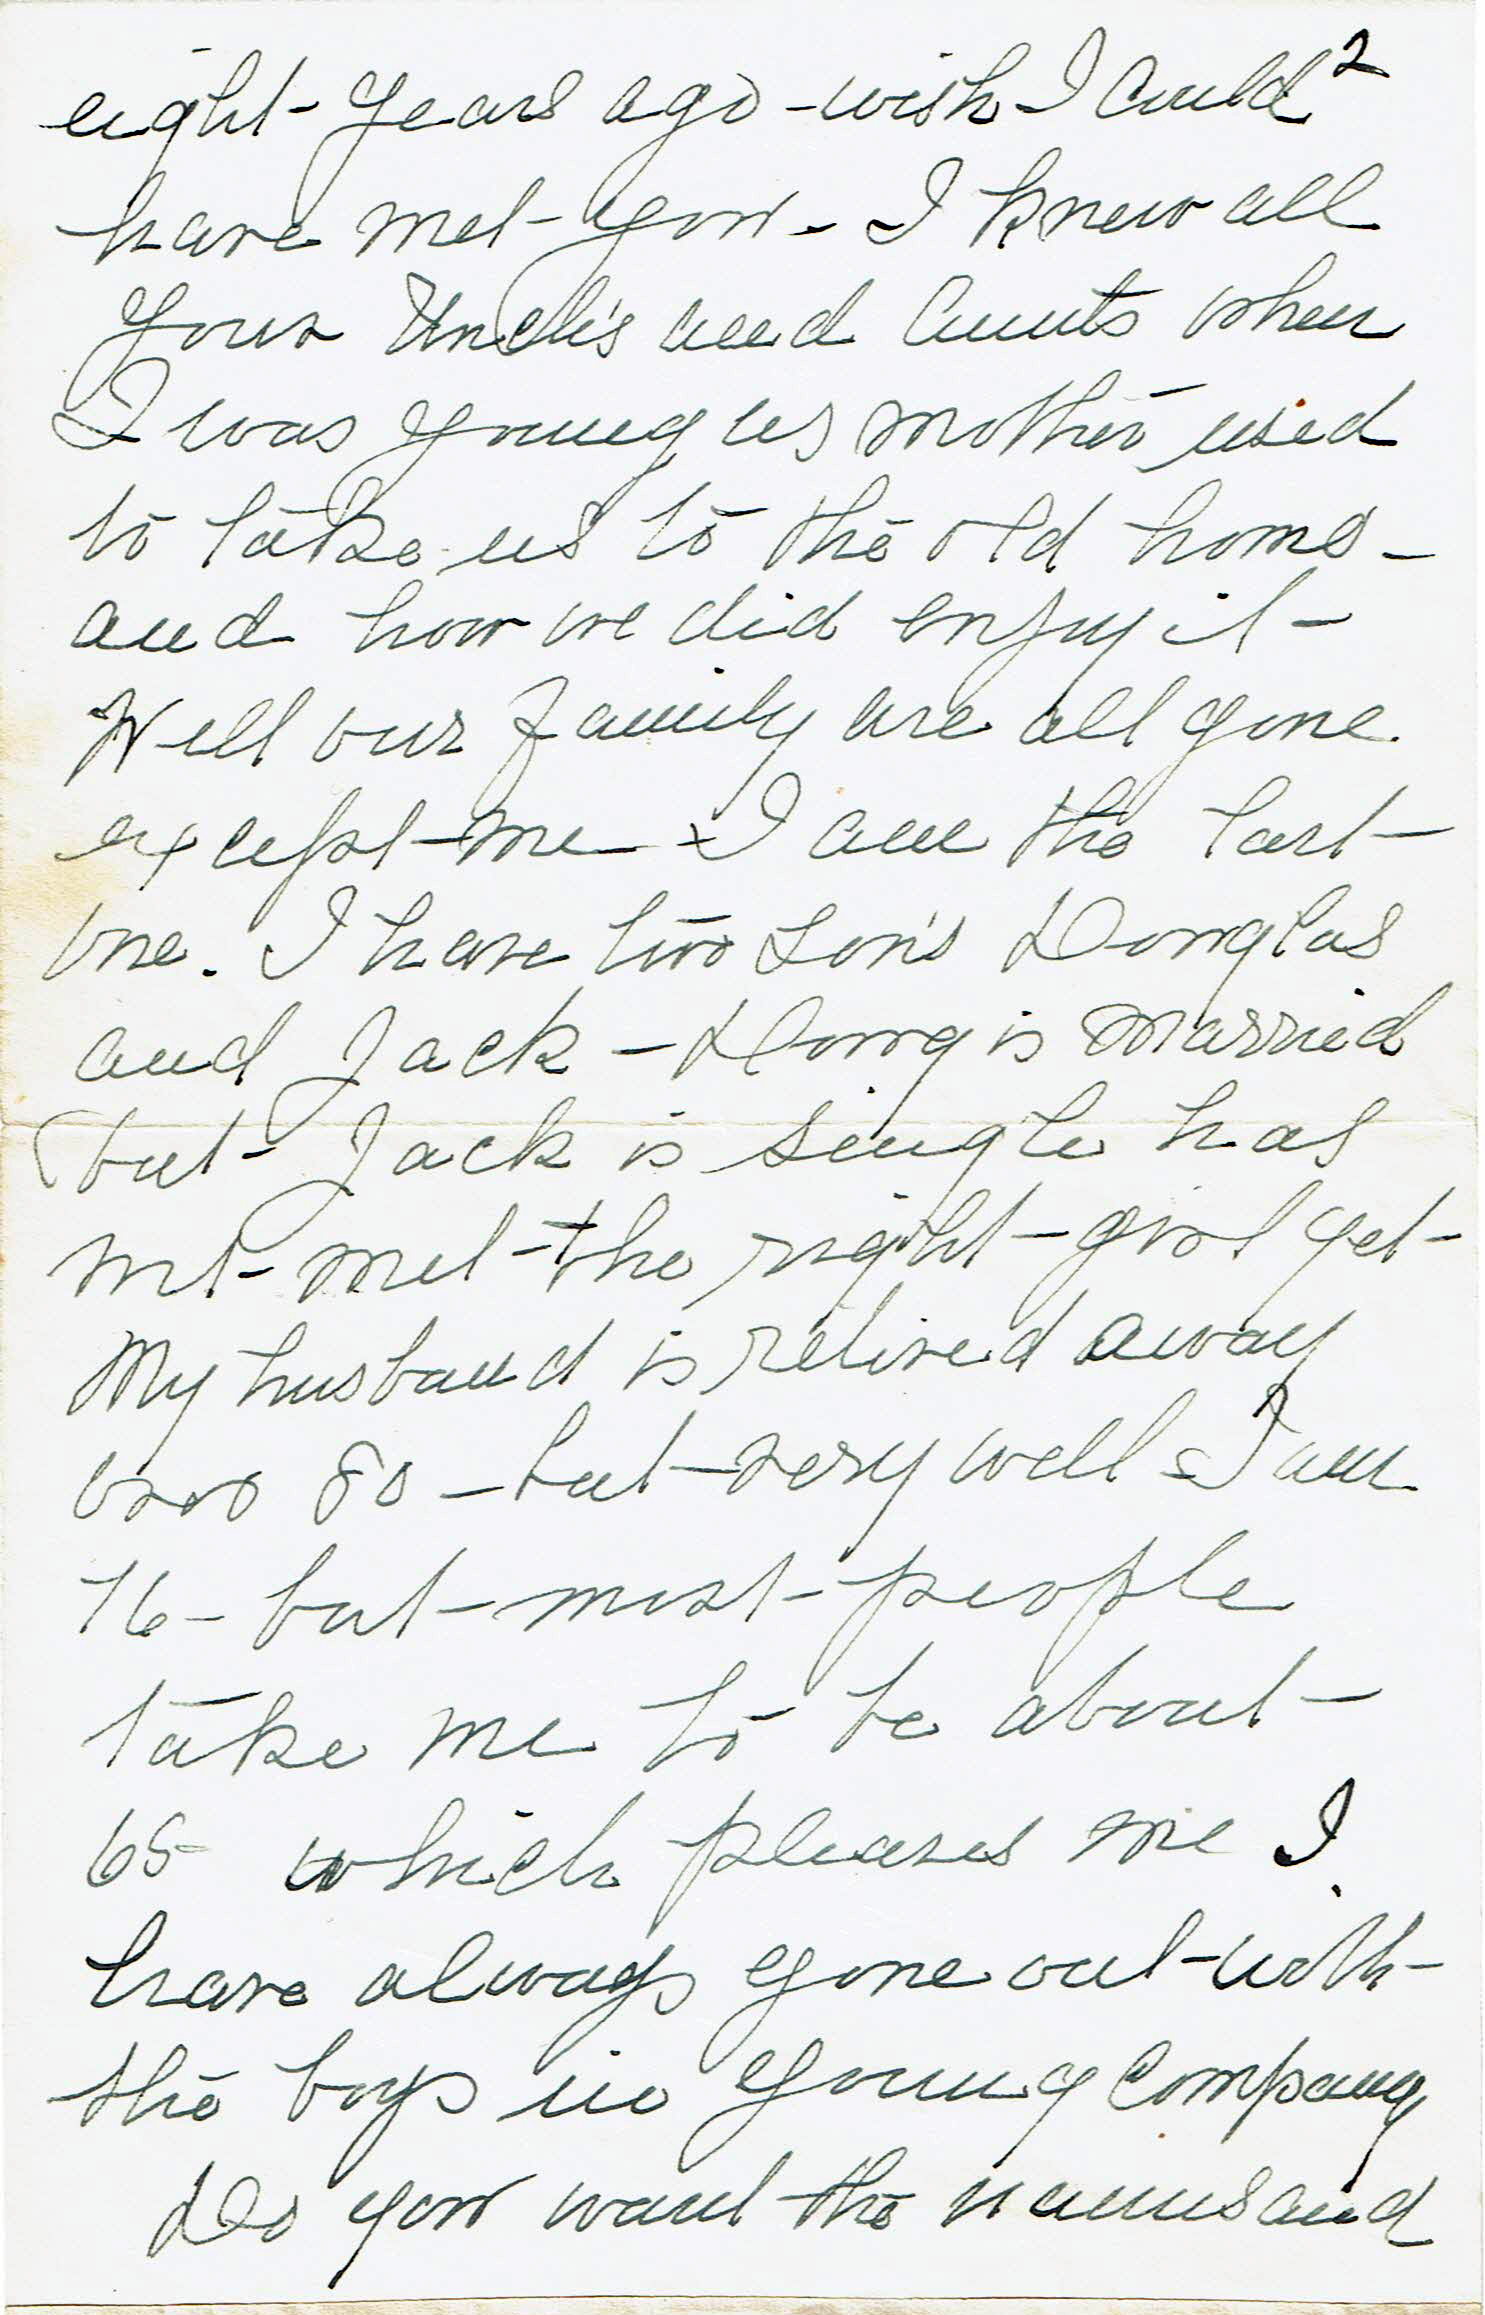 2
eight years ago - wish I could
have met you - I knew all
your Uncle's and Aunts when
I was young as mother used
to take us to the old home -
and how we did enjoy it -
Well our family are all gone
except me - I am the last
one. I have two son's Douglas
and Jack - Doug is married
but Jack is single has
not met the right girl yet -
My husband is retired away
over 80 - but very well - I am
76 - but most people
take me to be about
65 which pleases me I
have always gone out with
the boys in young company
Do you want the names and